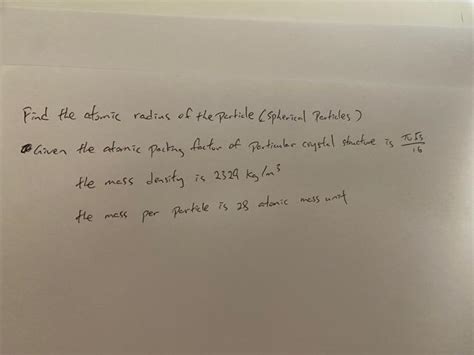 Find the atomic radius of the particle (Spherical Particles)
Given the atomic packing factor of Particular crystal structure is π√3/16
the mass density is 2329 kg/m³
the mass per particle is 28 atomic mass unit